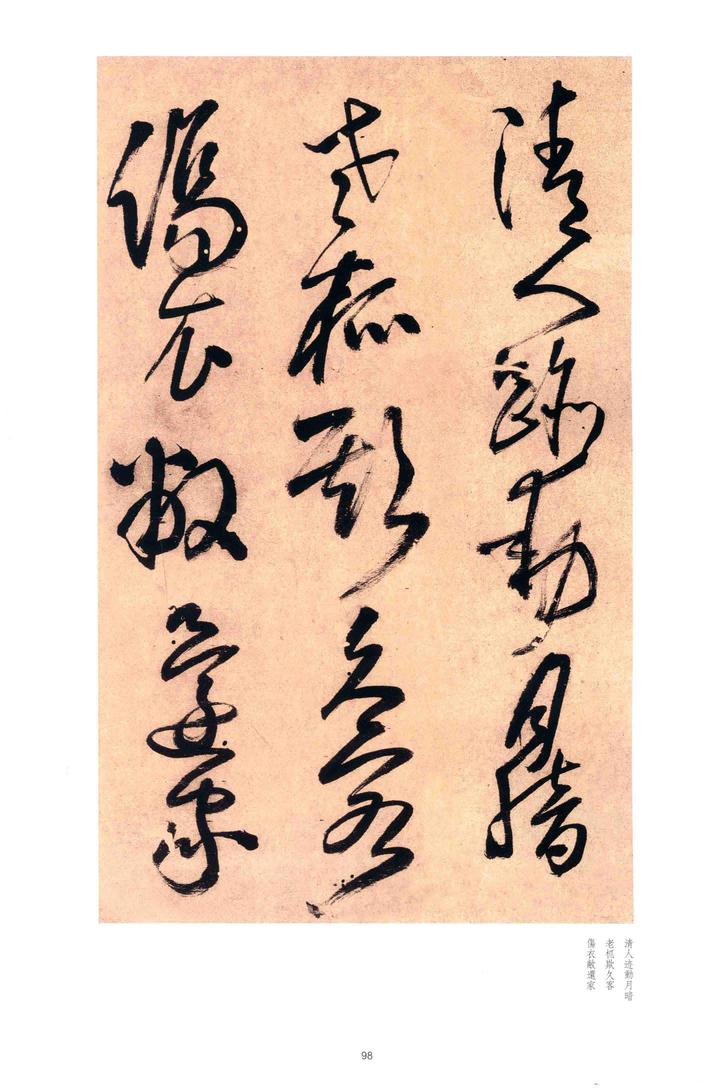 清人迹動月暗
老柧欺久客
傷衣敝還家
清人迹動月暗
老柧欺久客
傷衣敝還家
98